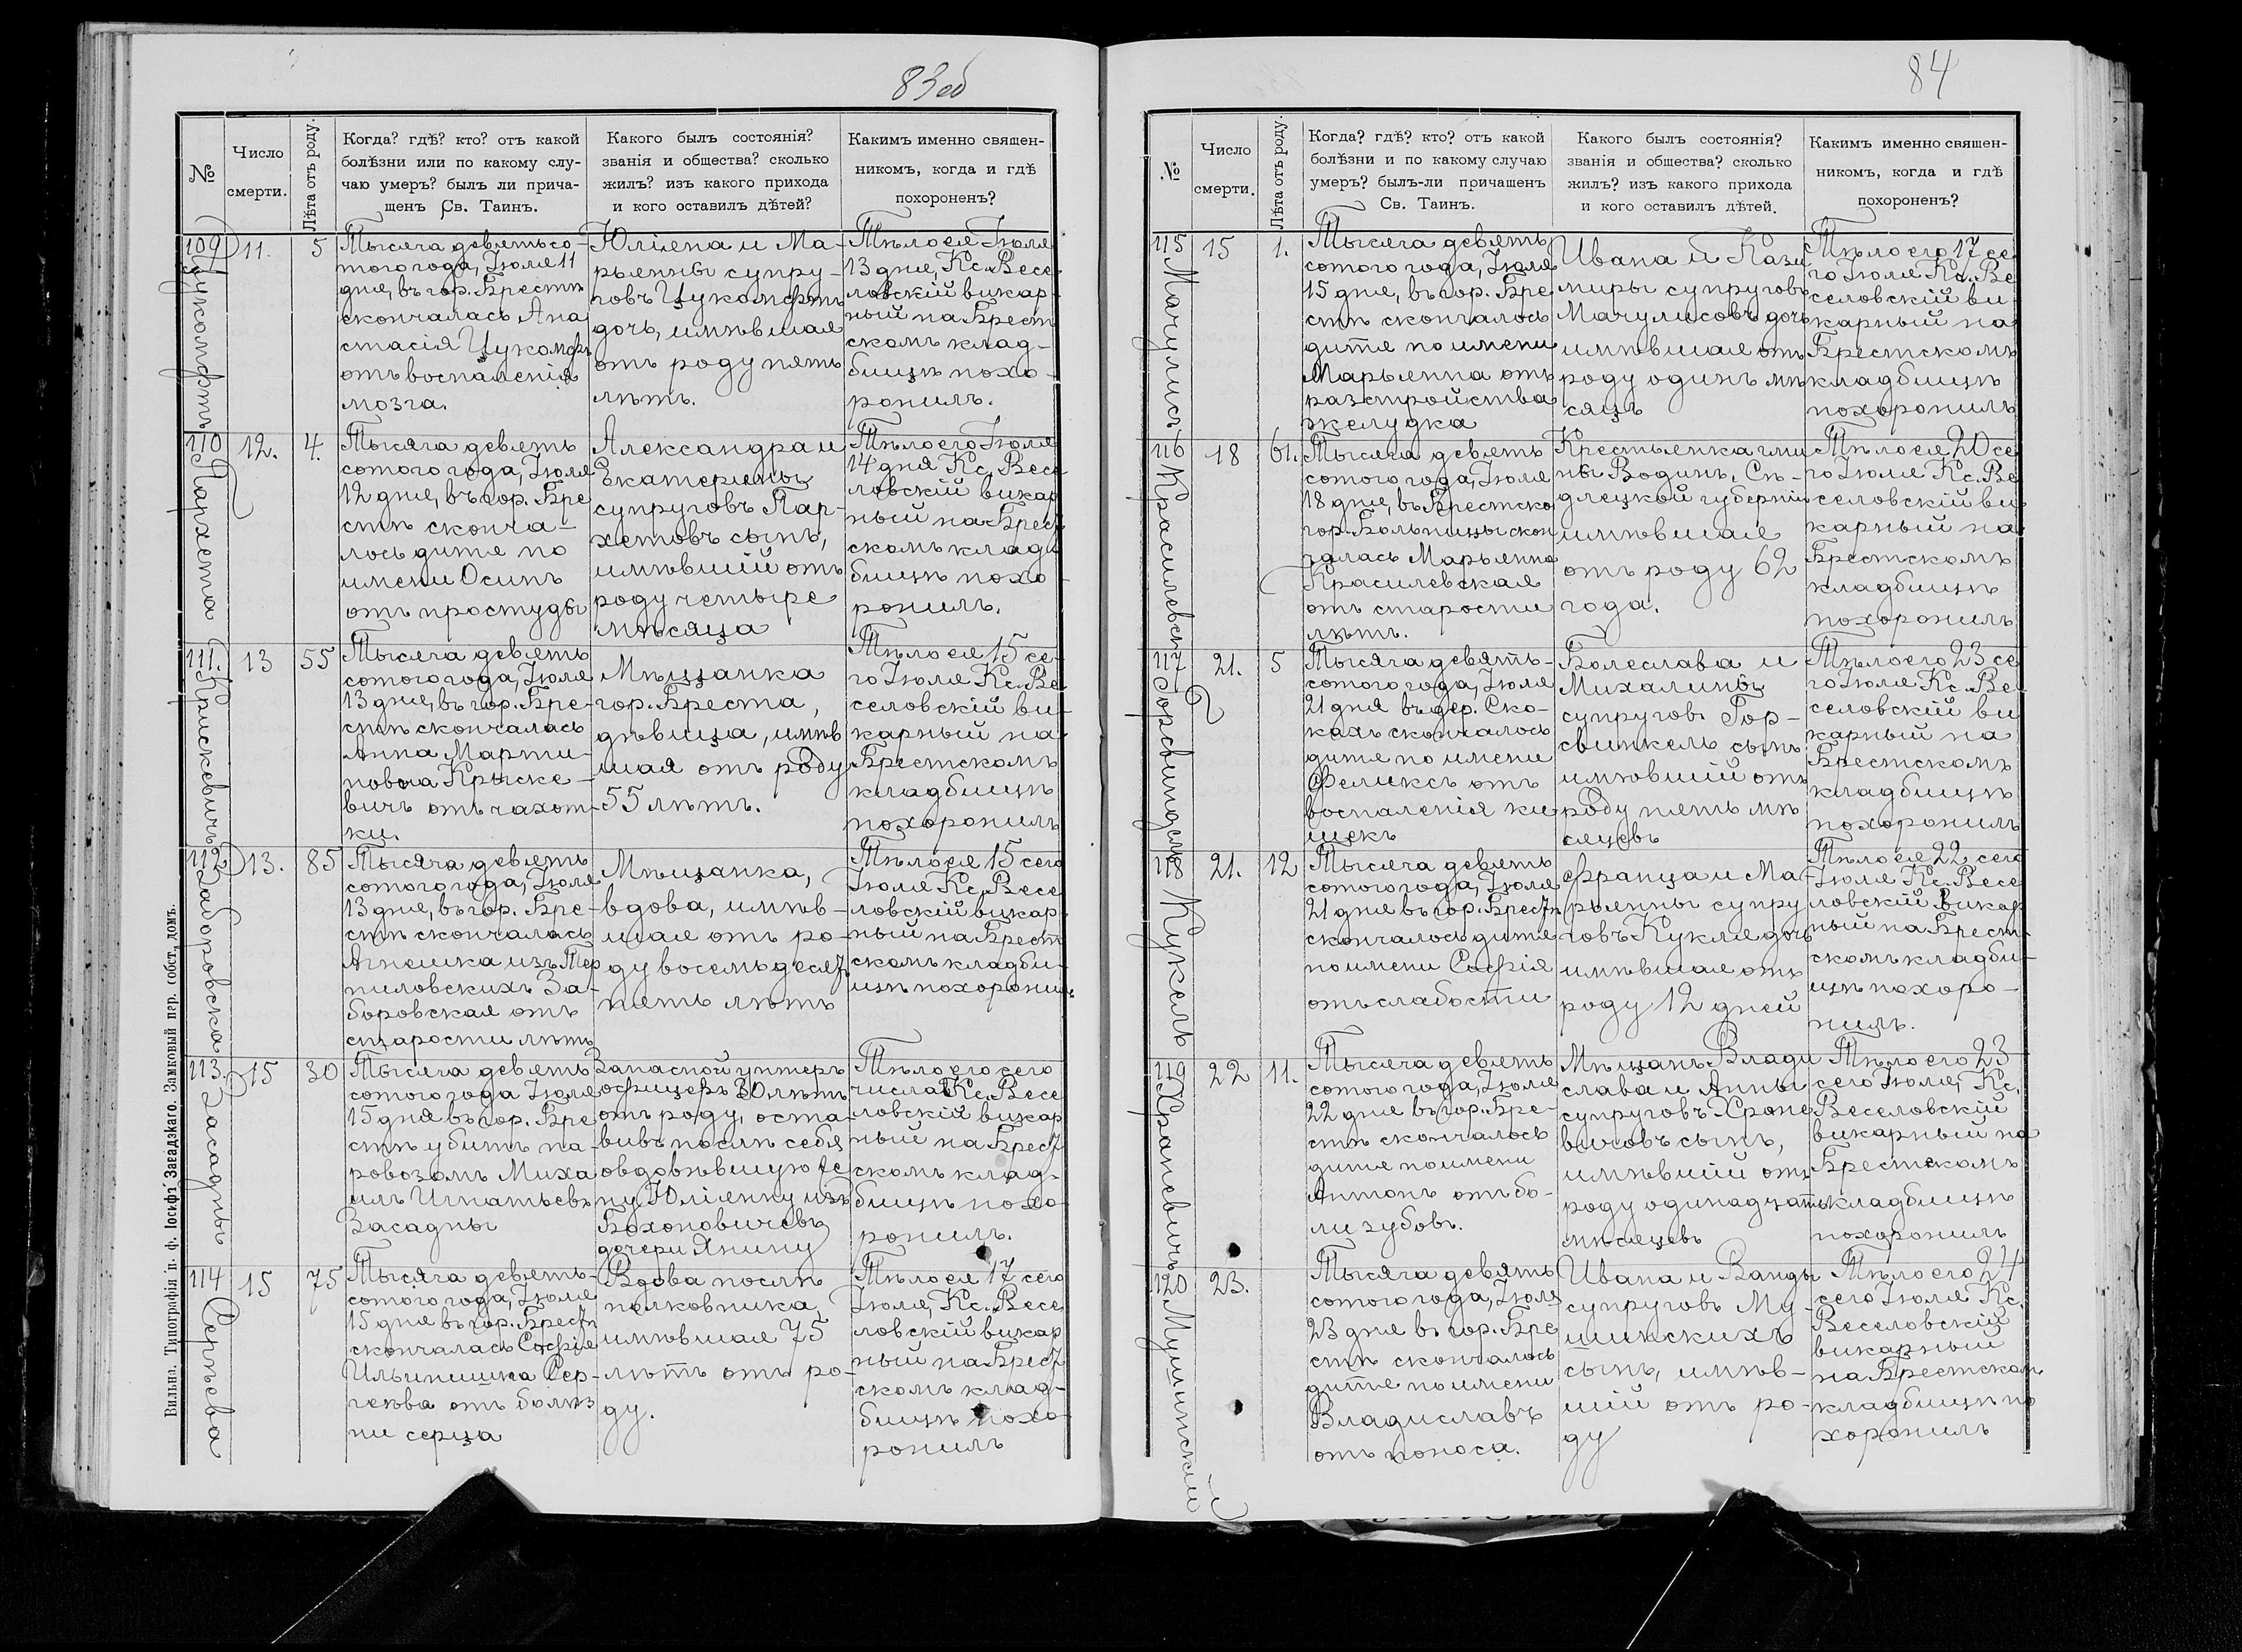 83 об
№
Число
смерти.
Лѣта отъ роду.
Когда? гдѣ? кто? отъ какой
болѣзни или по какому слу-
чаю умеръ? былъ ли прича-
щенъ Св. Таинъ.
Какого былъ состоянія?
званія и общества? сколько
жилъ? изъ какого прихода
и кого оставилъ дѣтей?
Какимъ именно священ-
никомъ, когда и гдѣ
похороненъ?
109
11.
5
Тысяча девятьсо-
того года, Іюля 11
дня, въ гор. Брестѣ
скончалась Ана
стасія
отъ воспаленія
мозга.
Юліяна и Ма-
рьянны супру-
говъ
дочь, имѣвшая
отъ роду пять
лѣтъ.
Тѣло ея Іюля
13 дня, Кс. Весе
ловскій викар
ный на Брест
скомъ клад-
бищѣ похо-
ронилъ.
110
Пархета
12.
4.
Тысяча девять
сотого года, Іюля
12 дня, въ гор. Бре
стѣ сконча-
лось дитя по
имени Осипъ
отъ простуды
Александра и
Екатерины
супруговъ Пар-
хетовъ сынъ,
имѣвшій отъ
роду четыре
мѣсяца
Тѣло его Іюля
14 дня Кс. Весе
ловскій викар
ный на Брест
скомъ клад
бищѣ похо
ронилъ.
111.
Крискевичъ
13
55
Тысяча девять
сотого года, Іюля
13 дня, въ гор. Бре-
стѣ скончалась
Анна Марти-
новна Крыске-
вичъ отъ чахот-
ки.
Мѣщанка
гор. Бреста,
дѣвица, имѣв
шая отъ роду
55 лѣтъ.
Тѣло ея 15 се-
го Іюля Кс. Ве
селовскій ви-
карный на
Брестскомъ
кладбищѣ
похоронилъ
112
Заборовска
13.
85
Тысяча девять
сотого года, Іюля
13 дня, въ гор. Бре-
стѣ скончалась
Агнешка изъ Тер
пиловскихъ За-
боровская отъ
старости лѣтъ
Мѣщанка,
вдова, имѣв-
шая отъ ро-
ду восемьдесят
пять лѣтъ
Тѣло ея 15 сего
Іюля Кс. Весе
ловскій викар
ный на Брест
скомъ кладби-
щѣ похоронилъ
113.
Засадны
15
30
Тысяча девять
сотого года Іюля
15 дня въ гор. Бре
стѣ убитъ па-
ровозомъ Миха
илъ Игнатьевъ
Засадны
Запасной унтеръ
офицеръ 30 лѣтъ
отъ роду, оста-
вивъ послѣ себя
овдовѣвшую же
ну Юліянну изъ
Бохоновичевъ
дочери Янину
Тѣло его сего
числа Кс. Весе
ловскій викар
ный на Брест
скомъ клад-
бищѣ похо-
ронилъ.
114
Сергѣева
15
75
Тысяча девять-
сотого года, Іюля
15 дня въ гор. Брест
скончалась Софія
Ильинишна Сер-
геѣва отъ болѣз
ни серца
Вдова послѣ
полковника
имѣвшая 75
лѣтъ отъ ро-
ду.
Тѣло ея 17 сего
Іюля, Кс. Весе
ловскій викар
ный на Брест
скомъ клад-
бищѣ похо-
ронилъ
Вильна. Типографія п. ф. Іосифъ Завадзкаго. Замковый пер. собст. домъ.
84
№
Число
смерти.
Лѣта отъ роду.
Когда? гдѣ? кто? отъ какой
болѣзни и по какому случаю
умеръ? былъ-ли причащенъ
Св. Таинъ.
Какого былъ состоянія?
званія и общества? сколько
жилъ? изъ какого прихода
и кого оставилъ дѣтей.
Какимъ именно священ-
никомъ, когда и гдѣ
похороненъ?
115
Мачулисъ
15
1.
Тысяча девять
сотого года, Іюля
15 дня, въ гор. Бре
стѣ скончалось
дитя по имени
Марьянна отъ
разстройства
желудка
Ивана и Кази
миры супруговъ
Мачулисовъ дочь
имѣвшая отъ
роду одинъ мѣ
сяцъ
Тѣло его 17 се
го Іюля Кс. Ве
селовскій ви
карный на
Брестскомъ
кладбищѣ
похоронилъ
116
18
61.
Тысяча девять
сотого года, Іюля
18 дня, въ Брестско
гор. Больницы скон
чалась Марьянна
Красилевская
отъ старости
лѣтъ.
Крестьянка гми
ны Водинь, Сѣ-
длецкой губерніи
имѣвшая
отъ роду 62
года.
Тѣло ея 20 се
го Іюля Кс. Ве
селовскій ви
карный на
Брестскомъ
кладбищѣ
похоронилъ
117
21.
5
Тысяча девять-
сотого года, Іюля
21 дня въ дер. Ско-
кахъ скончалось
дитя по имени
Феликсъ отъ
воспаленія ки
шекъ
Болеслава и
Михалины
супруговъ Гор-
свинкель сынъ
имѣвшій отъ
роду пять мѣ
сяцевъ
Тѣло его 23 се
го Іюля Кс. Ве
селовскій ви
карный на
Брестскомъ
кладбищѣ
похоронилъ
118
Кукель
21.
12
Тысяча девять
сотого года, Іюля
21 дня въ гор. Брестѣ
скончалось дитя
по имени Софія
отъ слабости
Франца и Ма-
рьянны супру
говъ Кукля дочь
имѣвшая отъ
роду 12 дней
Тѣло ея 22 сего
Іюля Кс. Весе
ловскій викар
ный на Брест-
скомъ кладби-
щѣ похоро-
нилъ.
119
Храпевичъ
22
11.
Тысяча девять
сотого года, Іюля
22 дня въ гор. Бре-
стѣ скончалось
дитя по имени
Антонъ отъ бо-
ли зубовъ.
Мѣщанъ Влади
слава и Анны
супруговъ Хропе
вичовъ сынъ,
имѣвшій отъ
роду одинадцать
мѣсяцевъ
Тѣло его 23
сего Іюля, Кс.
Веселовскій
викарный на
Брестскомъ
кладбищѣ
похоронилъ
120
Мушинскій
23.
Тысяча девять
сотого года, Іюля
23 дня въ гор. Бре
стѣ скончалось
дитя по имени
Владиславъ
отъ поноса.
Ивана и Ванды
супруговъ Му-
шинскихъ
сынъ, имѣв-
шій отъ ро-
ду
Тѣло его 24
сего Іюля Кс.
Веселовскій
викарный
на Брестскомъ
кладбищѣ по
хоронилъ